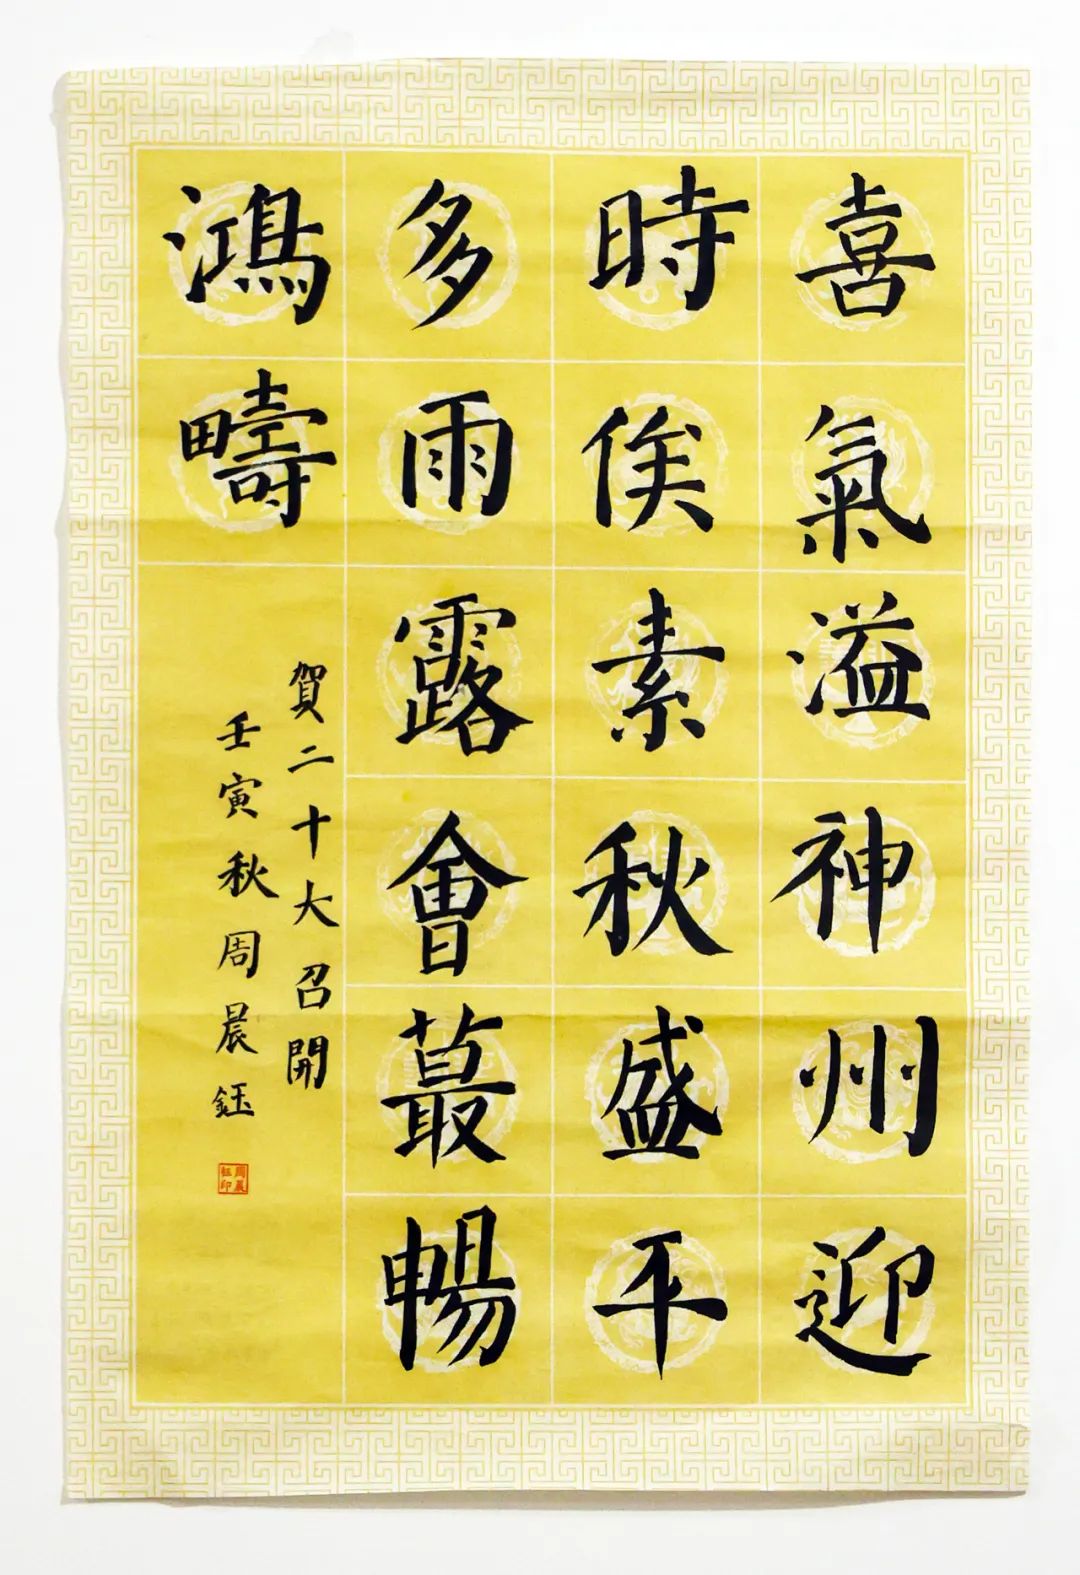 喜氣溢神州迎
時俟素秋盛平
多雨露會蕞暢
鴻疇
賀二十大召開
壬寅秋周晨鈺
周晨鈺印